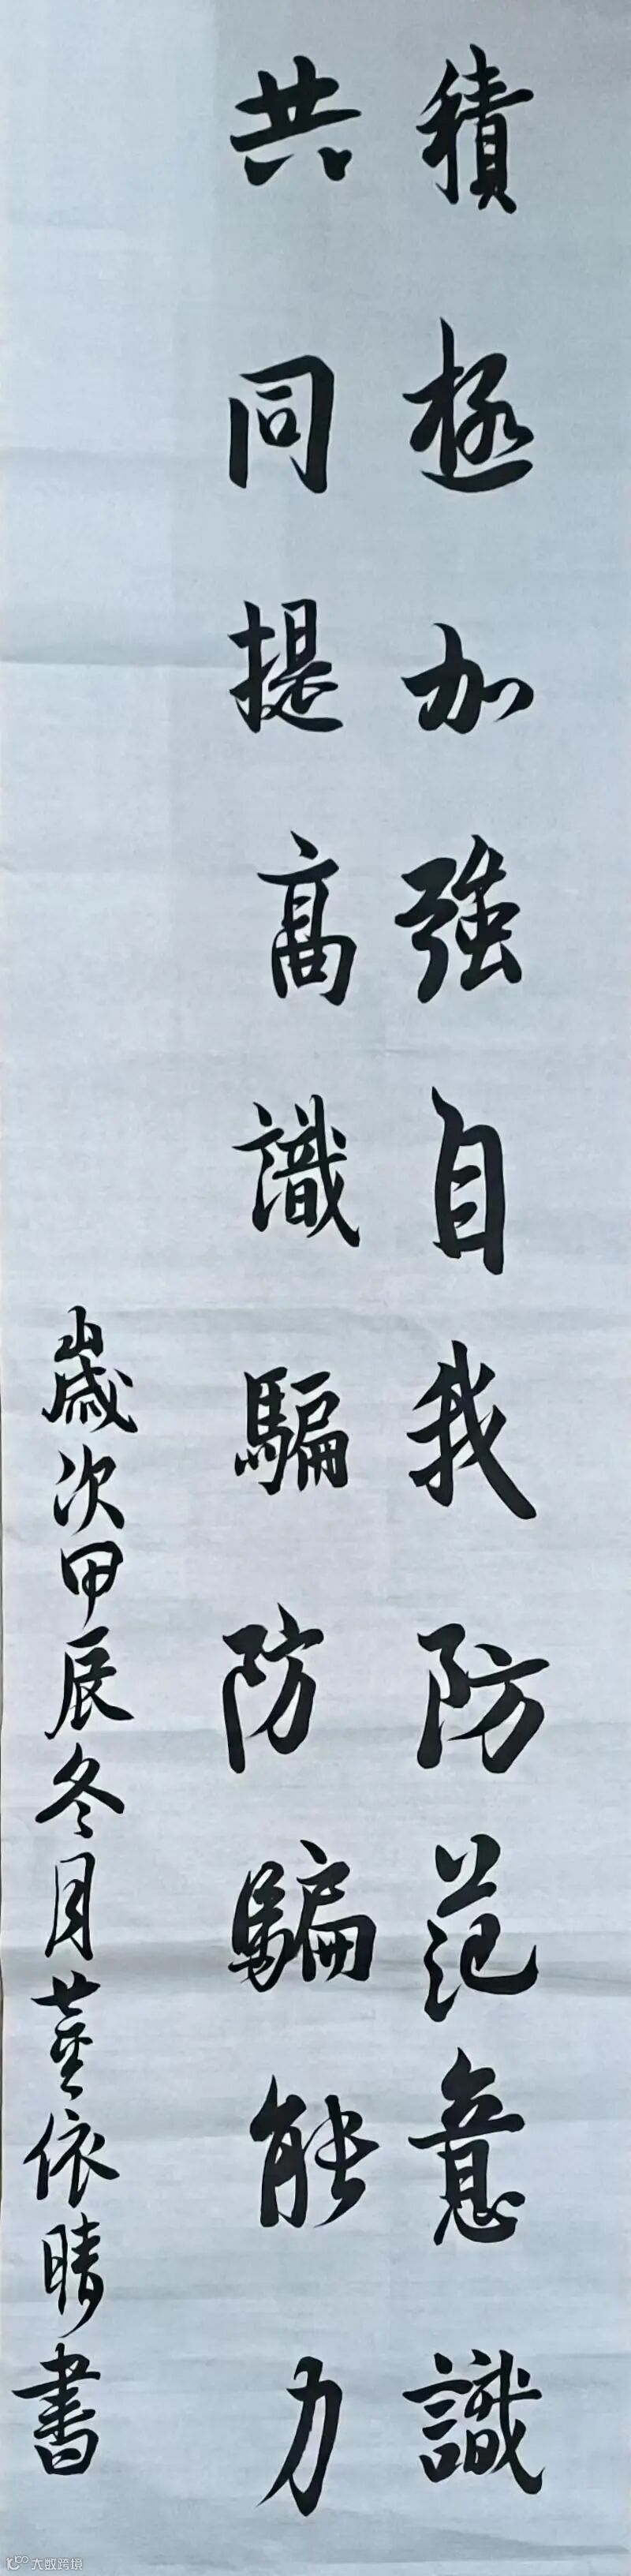 積極加強自我防范意識
共同提高識騙防騙能力
歲次甲辰冬月董依晴書
大数跨境